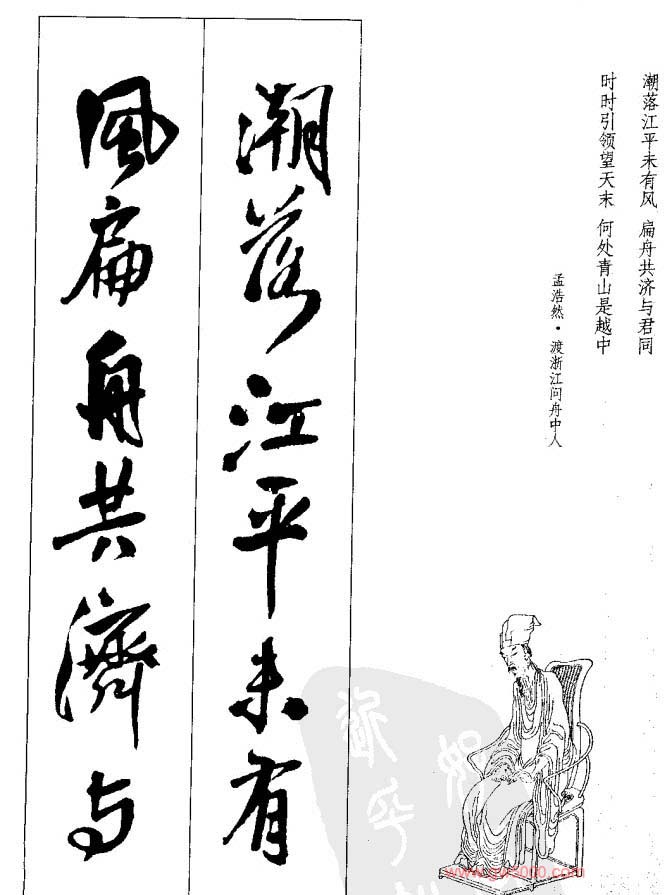 潮落江平未有风 扁舟共济与君同
时时引领望天末 何处青山是越中
孟浩然·渡浙江问舟中人
潮落江平未有
風扁舟共濟与
www.gw5000.com